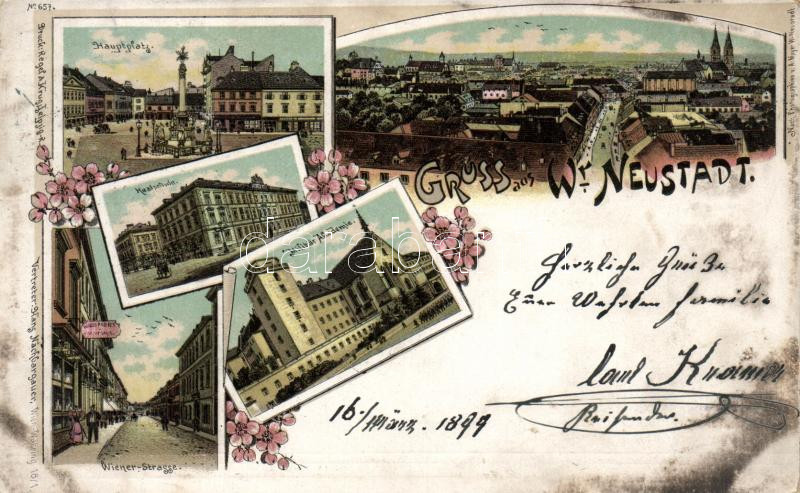 No 657.
Hauptplatz.
Realschule.
Militär Akademie.
Wiener-Strasse.
GRUSS aus Wr NEUSTADT.
Herzliche Grüße
Euer Werthen Familie
Carl Kramer
Reisender.
16./März. 1899
Druck: Regel & Krug, Leipzig-R.
darabanth